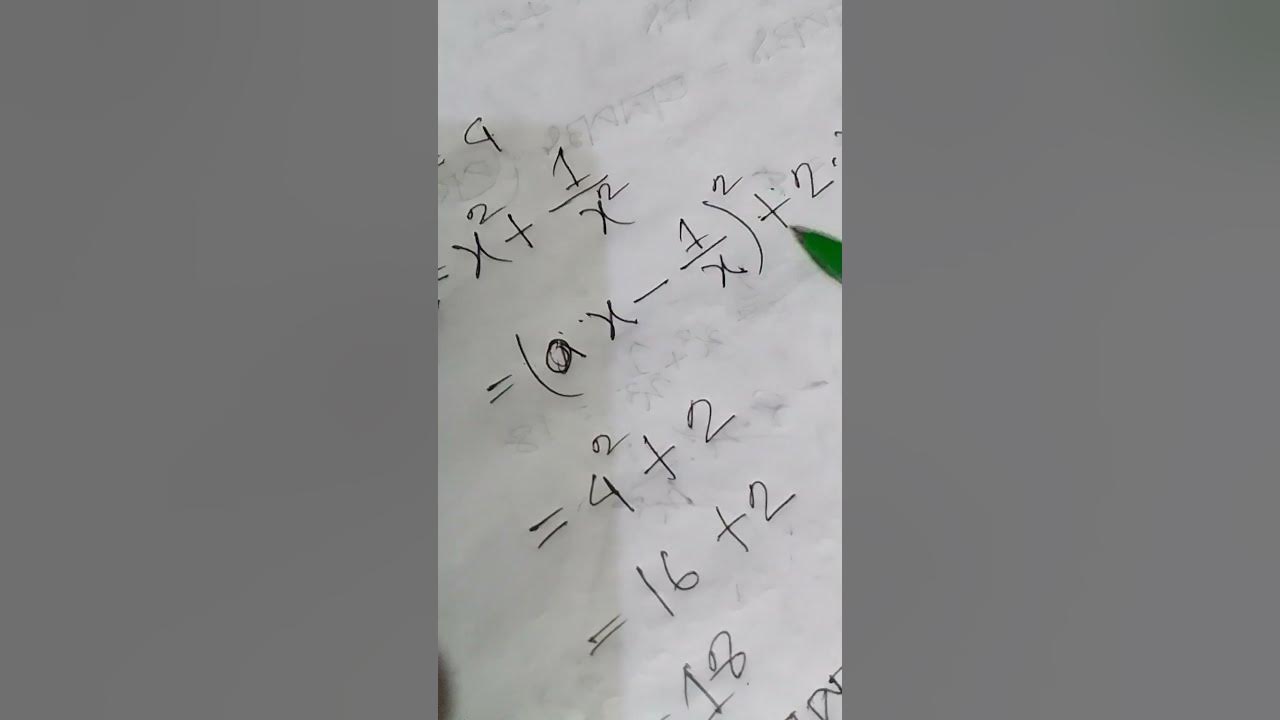 = 4
= x² + 1/x²
= (x - 1/x)² + 2.
= 4² + 2
= 16 + 2
= 18